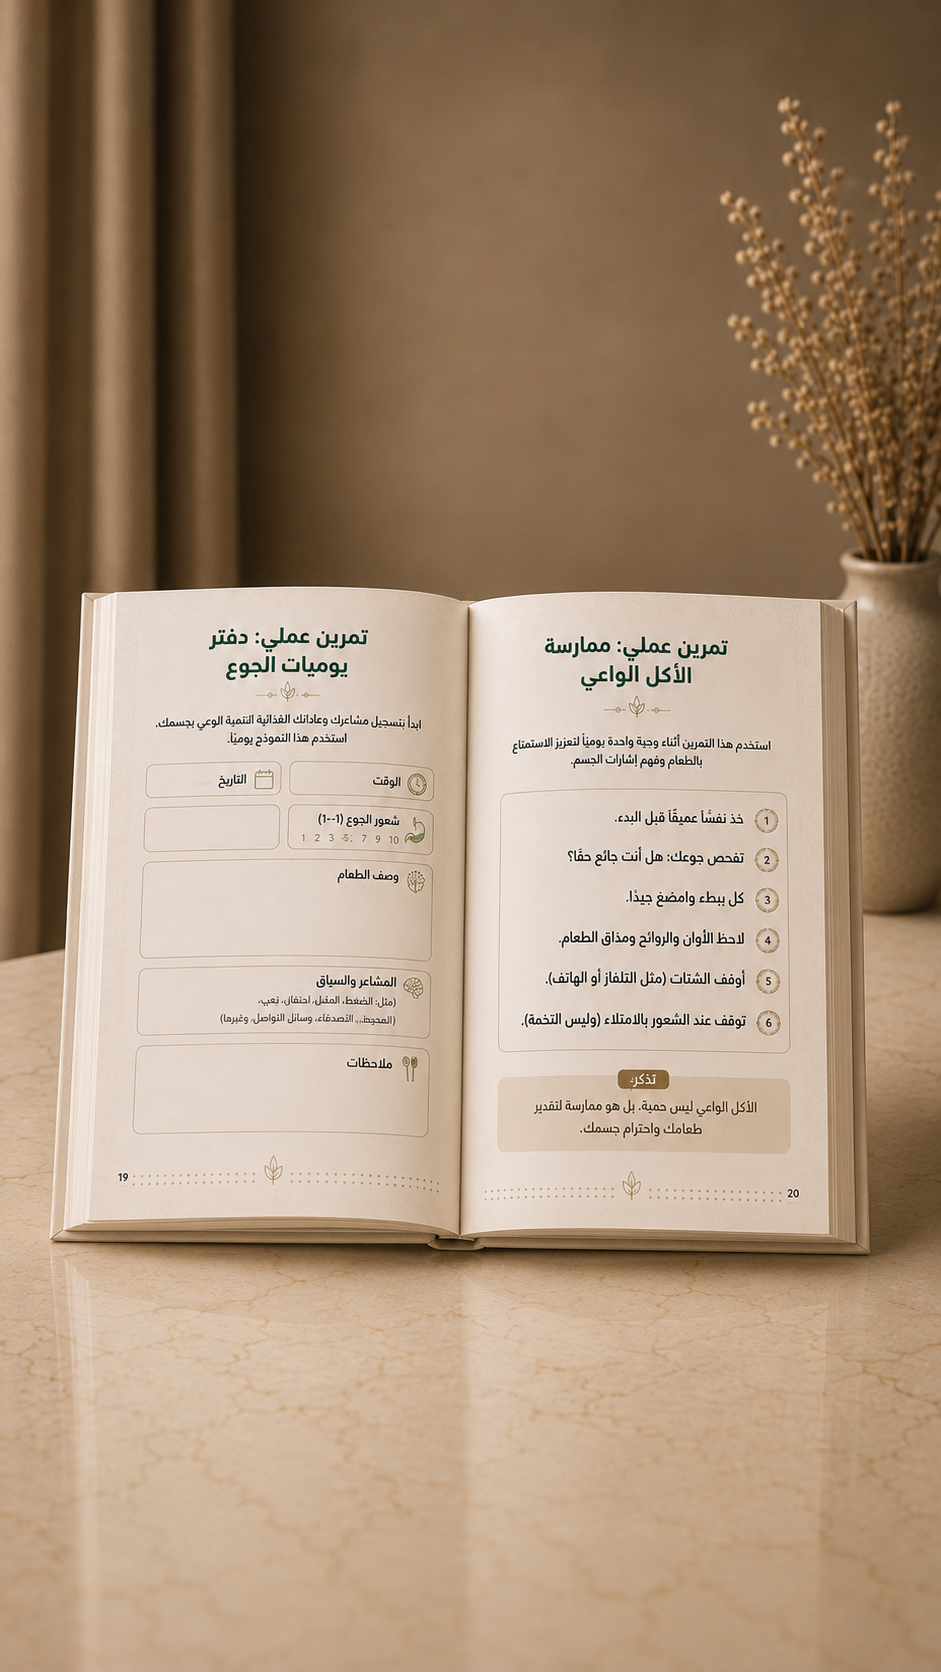 تمرين عملي: دفتر
يوميات الجوع
ابدأ بتسجيل مشاعرك وعاداتك الغذائية لتنمية الوعي بجسمك.
استخدم هذا النموذج يوميًا.
الوقت
التاريخ
شعور الجوع (1--1)
1 2 3 5 7 9 10
وصف الطعام
المشاعر والسياق
(مثل: الضغط،
وسائل التواصل، وغيرها)
ملاحظات
19
تمرين عملي: ممارسة
الأكل الواعي
استخدم هذا التمرين أثناء وجبة واحدة يوميًا لتعزيز الاستمتاع
بالطعام وفهم إشارات الجسم.
1 خذ نفسًا عميقًا قبل البدء.
2 تفحص جوعك: هل أنت جائع حقًا؟
3 كل ببطء وامضغ جيدًا.
4 لاحظ الأوان والروائح ومذاق الطعام.
5 أوقف الشتات (مثل التلفاز أو الهاتف).
6 توقف عند الشعور بالامتلاء (وليس التخمة).
تذكر:
الأكل الواعي ليس حمية، بل هو ممارسة لتقدير
طعامك واحترام جسمك.
20